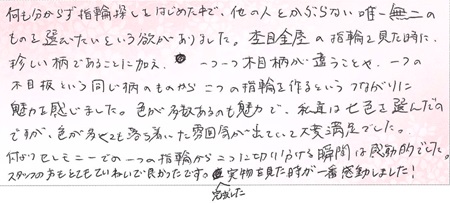 何も分からず指輪探しをはじめた中で、他の人とかぶらない唯一無二の
ものを選びたいという欲がありました。杢目金屋の指輪を見た時に、
珍しい柄であることに加え、一つ一つ木目柄が違うことや、一つの
木目板という同じ柄のものから二つの指輪を作るというつながりに
魅力を感じました。色が多数あるのも魅力で、私達は七色を選んだの
ですが、色が多くても落ち着いた雰囲気が出ていて大変満足でした。
付けセレモニーでの一つの指輪から二つに切り分ける瞬間は感動的でした。
スタッフのおもてなしもていねいで良かったです。実物を見た時が一番感動しました!
完成した